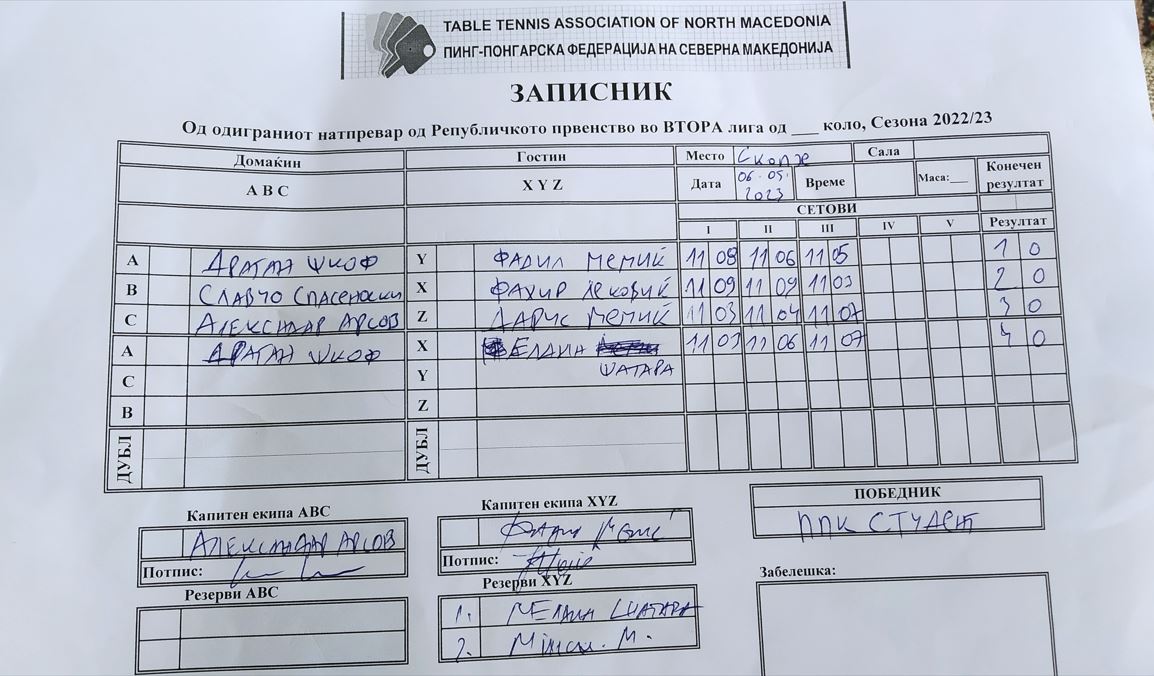 TABLE TENNIS ASSOCIATION OF NORTH MACEDONIA
ПИНГ-ПОНГАРСКА ФЕДЕРАЦИЈА НА СЕВЕРНА МАКЕДОНИЈА
ЗАПИСНИК
Од одиграниот натпревар од Републичкото првенство во ВТОРА лига од ___ коло, Сезона 2022/23
Домаќин Гостин Место Скопје Сала Конечен резултат
A B C X Y Z Дата 06.05.2023 Време Маса:___
СЕТОВИ
I II III IV V Резултат
A ДРАГАН ШКОФ Y ФАДИЛ МЕМИЌ 11 08 11 06 11 05 1 0
B СЛАВЧО СПАСЕНОСКИ X ФАХИР ЛЕКОВИЌ 11 09 11 09 11 03 2 0
C АЛЕКСАНДАР АРСОВ Z ДАРИС МЕМИЌ 11 03 11 04 11 07 3 0
A ДРАГАН ШКОФ X 11 03 11 06 11 07 4 0
C Y ШАТАРА
B Z
ДУБЛ ДУБЛ
Капитен екипа ABC Капитен екипа XYZ ПОБЕДНИК
АЛЕКСАНДАР АРСОВ ППК СТУДЕНТ
Потпис: Потпис:
Резерви ABC Резерви XYZ Забелешка:
1. ШАТАРА
2. М.